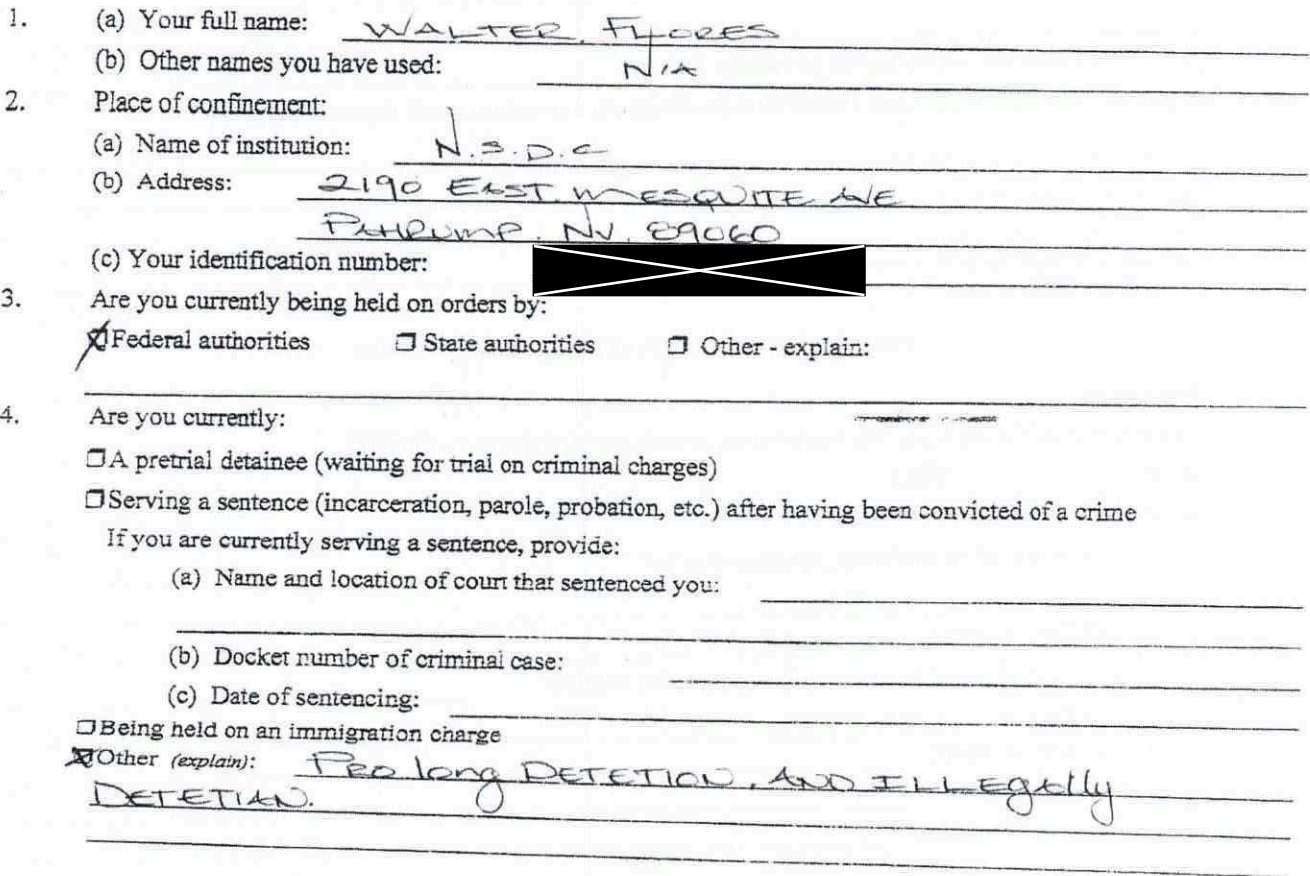 1. (a) Your full name: WALTER FLORES
(b) Other names you have used: N/A
2. Place of confinement:
(a) Name of institution: N.S.D.C
(b) Address: 2190 EAST. MESQUITE AVE
PAHRUMP. NV. 89060
(c) Your identification number:
3. Are you currently being held on orders by:
☒ Federal authorities ☐ State authorities ☐ Other - explain:
4. Are you currently:
☐ A pretrial detainee (waiting for trial on criminal charges)
☐ Serving a sentence (incarceration, parole, probation, etc.) after having been convicted of a crime
If you are currently serving a sentence, provide:
(a) Name and location of court that sentenced you:
(b) Docket number of criminal case:
(c) Date of sentencing:
☐ Being held on an immigration charge
☒ Other (explain): PRO long DETETION, AND ILLEgally
DETETIAN.